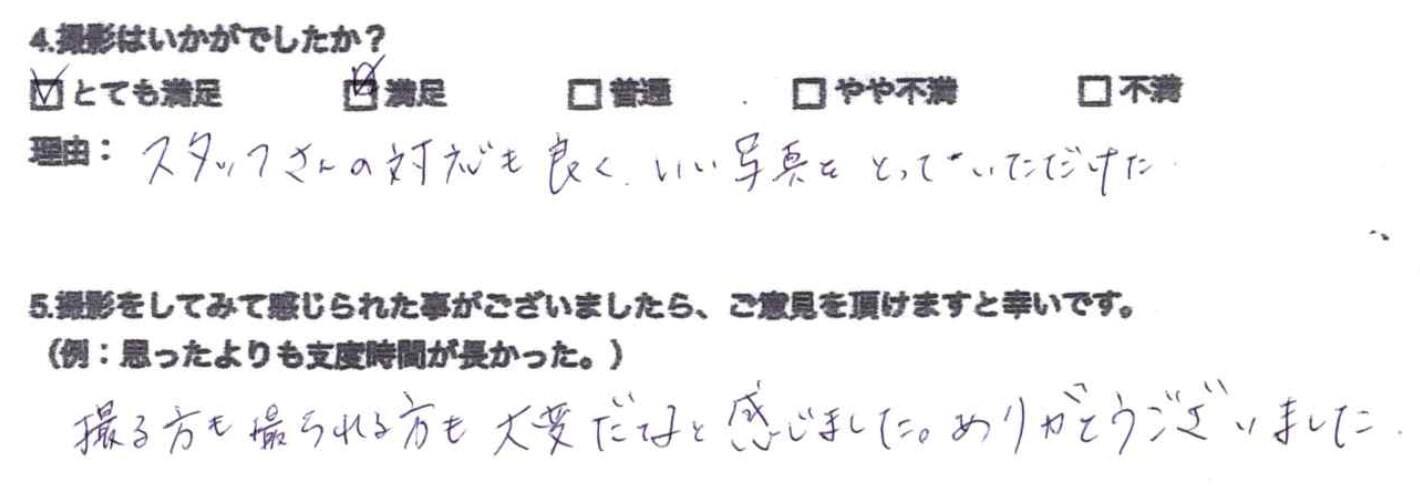 4.撮影はいかがでしたか？
☑とても満足 ☑満足 □普通 □やや不満 □不満
理由：スタッフさんの対応も良く、いい写真をとっていただけた
5.撮影をしてみて感じられた事がございましたら、ご意見を頂けますと幸いです。
（例：思ったよりも支度時間が長かった。）
撮る方も撮られる方も大変だなと感じました。ありがとうございました